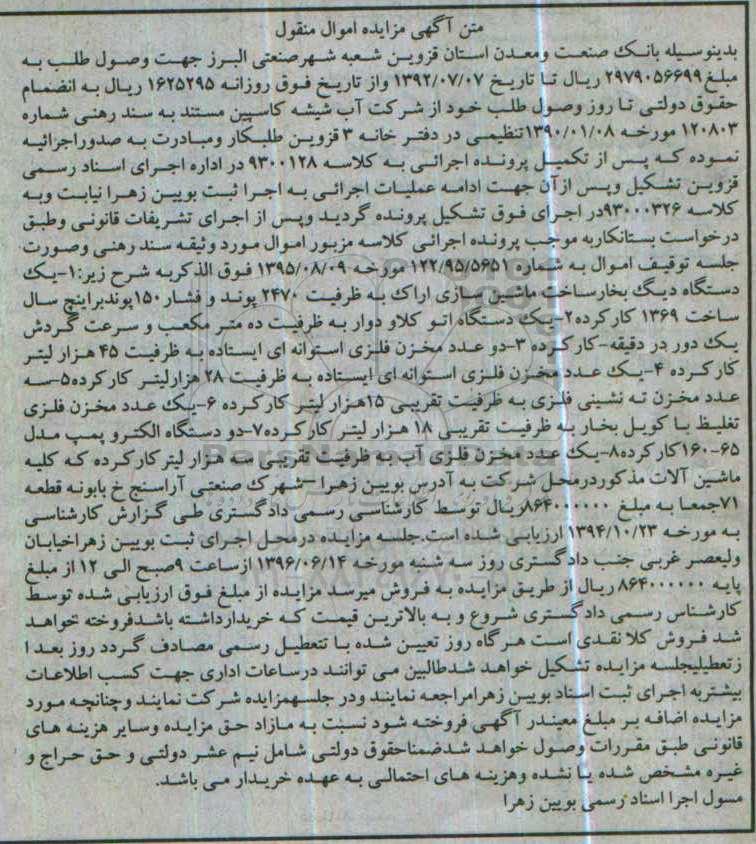 متن آگهی مزایده اموال منقول
بدینوسیله بانک صنعت ومعدن استان قزوین شعبه شهرصنعتی البرز جهت وصول طلب به
مبلغ۲۹۷۹۰۵۶۶۹۹ ریال تا تاریخ ۱۳۹۲/۰۷/۰۷ واز تاریخ فوق روزانه ۱۶۲۵۲۹۵ ریال به انضمام
حقوق دولتی تا روز وصول طلب خود از شرکت آب شیشه کاسپین مستند به سند رهنی شماره
۱۲۰۸۰۳ مورخه ۱۳۹۰/۰۱/۰۸تنظیمی در دفتر خانه ۳ قزوین طلبکار ومبادرت به صدوراجرائیه
نموده که پس از تکمیل پرونده اجرائی به کلاسه ۹۳۰۰۱۲۸ در اداره اجرای اسناد رسمی
قزوین تشکیل وپس ازآن جهت ادامه عملیات اجرائی به اجرا ثبت بویین زهرا نیابت وبه
کلاسه ۹۳۰۰۰۳۲۶در اجرای فوق تشکیل پرونده گردید وپس از اجرای تشریفات قانونی وطبق
درخواست بستانکاربه موجب پرونده اجرائی کلاسه مزبور اموال مورد وثیقه سند رهنی وصورت
جلسه توقیف اموال به شماره ۱۲۲/۹۵/۵۶۵۱ مورخه ۱۳۹۵/۰۸/۰۹ فوق الذکربه شرح زیر:۱-یک
دستگاه دیگ بخارساخت ماشین سازی اراک به ظرفیت ۲۴۷۰ پوند و فشار۱۵۰پوندبراینچ سال
ساخت ۱۳۶۹ کارکرده۲-یک دستگاه اتو کلاو دوار به ظرفیت ده متر مکعب و سرعت گردش
یک دور در دقیقه-کارکرده ۳-دو عدد مخزن فلزی استوانه ای ایستاده به ظرفیت ۴۵ هزار لیتر
کارکرده ۴-یک عدد مخزن فلزی استوانه ای ایستاده به ظرفیت ۲۸ هزارلیتر کارکرده۵-سه
عدد مخزن ته نشینی فلزی به ظرفیت تقریبی ۱۵هزار لیتر کارکرده ۶-یک عدد مخزن فلزی
تغلیظ با کویل بخار به ظرفیت تقریبی ۱۸ هزار لیتر کارکرده۷-دو دستگاه الکترو پمپ مدل
۶۵-۱۶۰کارکرده۸-یک عدد مخزن فلزی آب به ظرفیت تقریبی سه هزار لیترکارکرده که کلیه
ماشین آلات مذکوردرمحل شرکت به آدرس بویین زهرا-شهرک صنعتی آراسنج خ بابونه قطعه
۷۱جمعا به مبلغ ۸۶۴۰۰۰۰۰۰ریال توسط کارشناسی رسمی دادگستری طی گزارش کارشناسی
به مورخه ۱۳۹۴/۱۰/۲۳ ارزیابی شده است.جلسه مزایده درمحل اجرای ثبت بویین زهراخیابان
ولیعصر غربی جنب دادگستری روز سه شنبه مورخه ۱۳۹۶/۰۶/۱۴ ازساعت ۹صبح الی ۱۲ از مبلغ
پایه ۸۶۴۰۰۰۰۰۰ ریال از طریق مزایده به فروش میرسد مزایده از مبلغ فوق ارزیابی شده توسط
کارشناس رسمی دادگستری شروع و به بالاترین قیمت که خریدارداشته باشدفروخته خواهد
شد فروش کلا نقدی است هرگاه روز تعیین شده با تتعطیل رسمی مصادف گردد روز بعد ا
ز تعطیلیجلسه مزایده تشکیل خواهد شدطالبین می توانند درساعات اداری جهت کسب اطلاعات
بیشتربه اجرای ثبت اسناد بویین زهرامراجعه نمایند ودر جلسهمزایده شرکت نمایند وچنانچه مورد
مزایده اضافه بر مبلغ معیندر آگهی فروخته شود نسبت به مازاد حق مزایده وسایر هزینه های
قانونی طبق مقررات وصول خواهد شدضمناحقوق دولتی شامل نیم عشر دولتی و حق حراج و
غیره مشخص شده یا نشده وهزینه های احتمالی به عهده خریدار می باشد.
مسول اجرا اسناد رسمی بویین زهرا
ParsNamadData